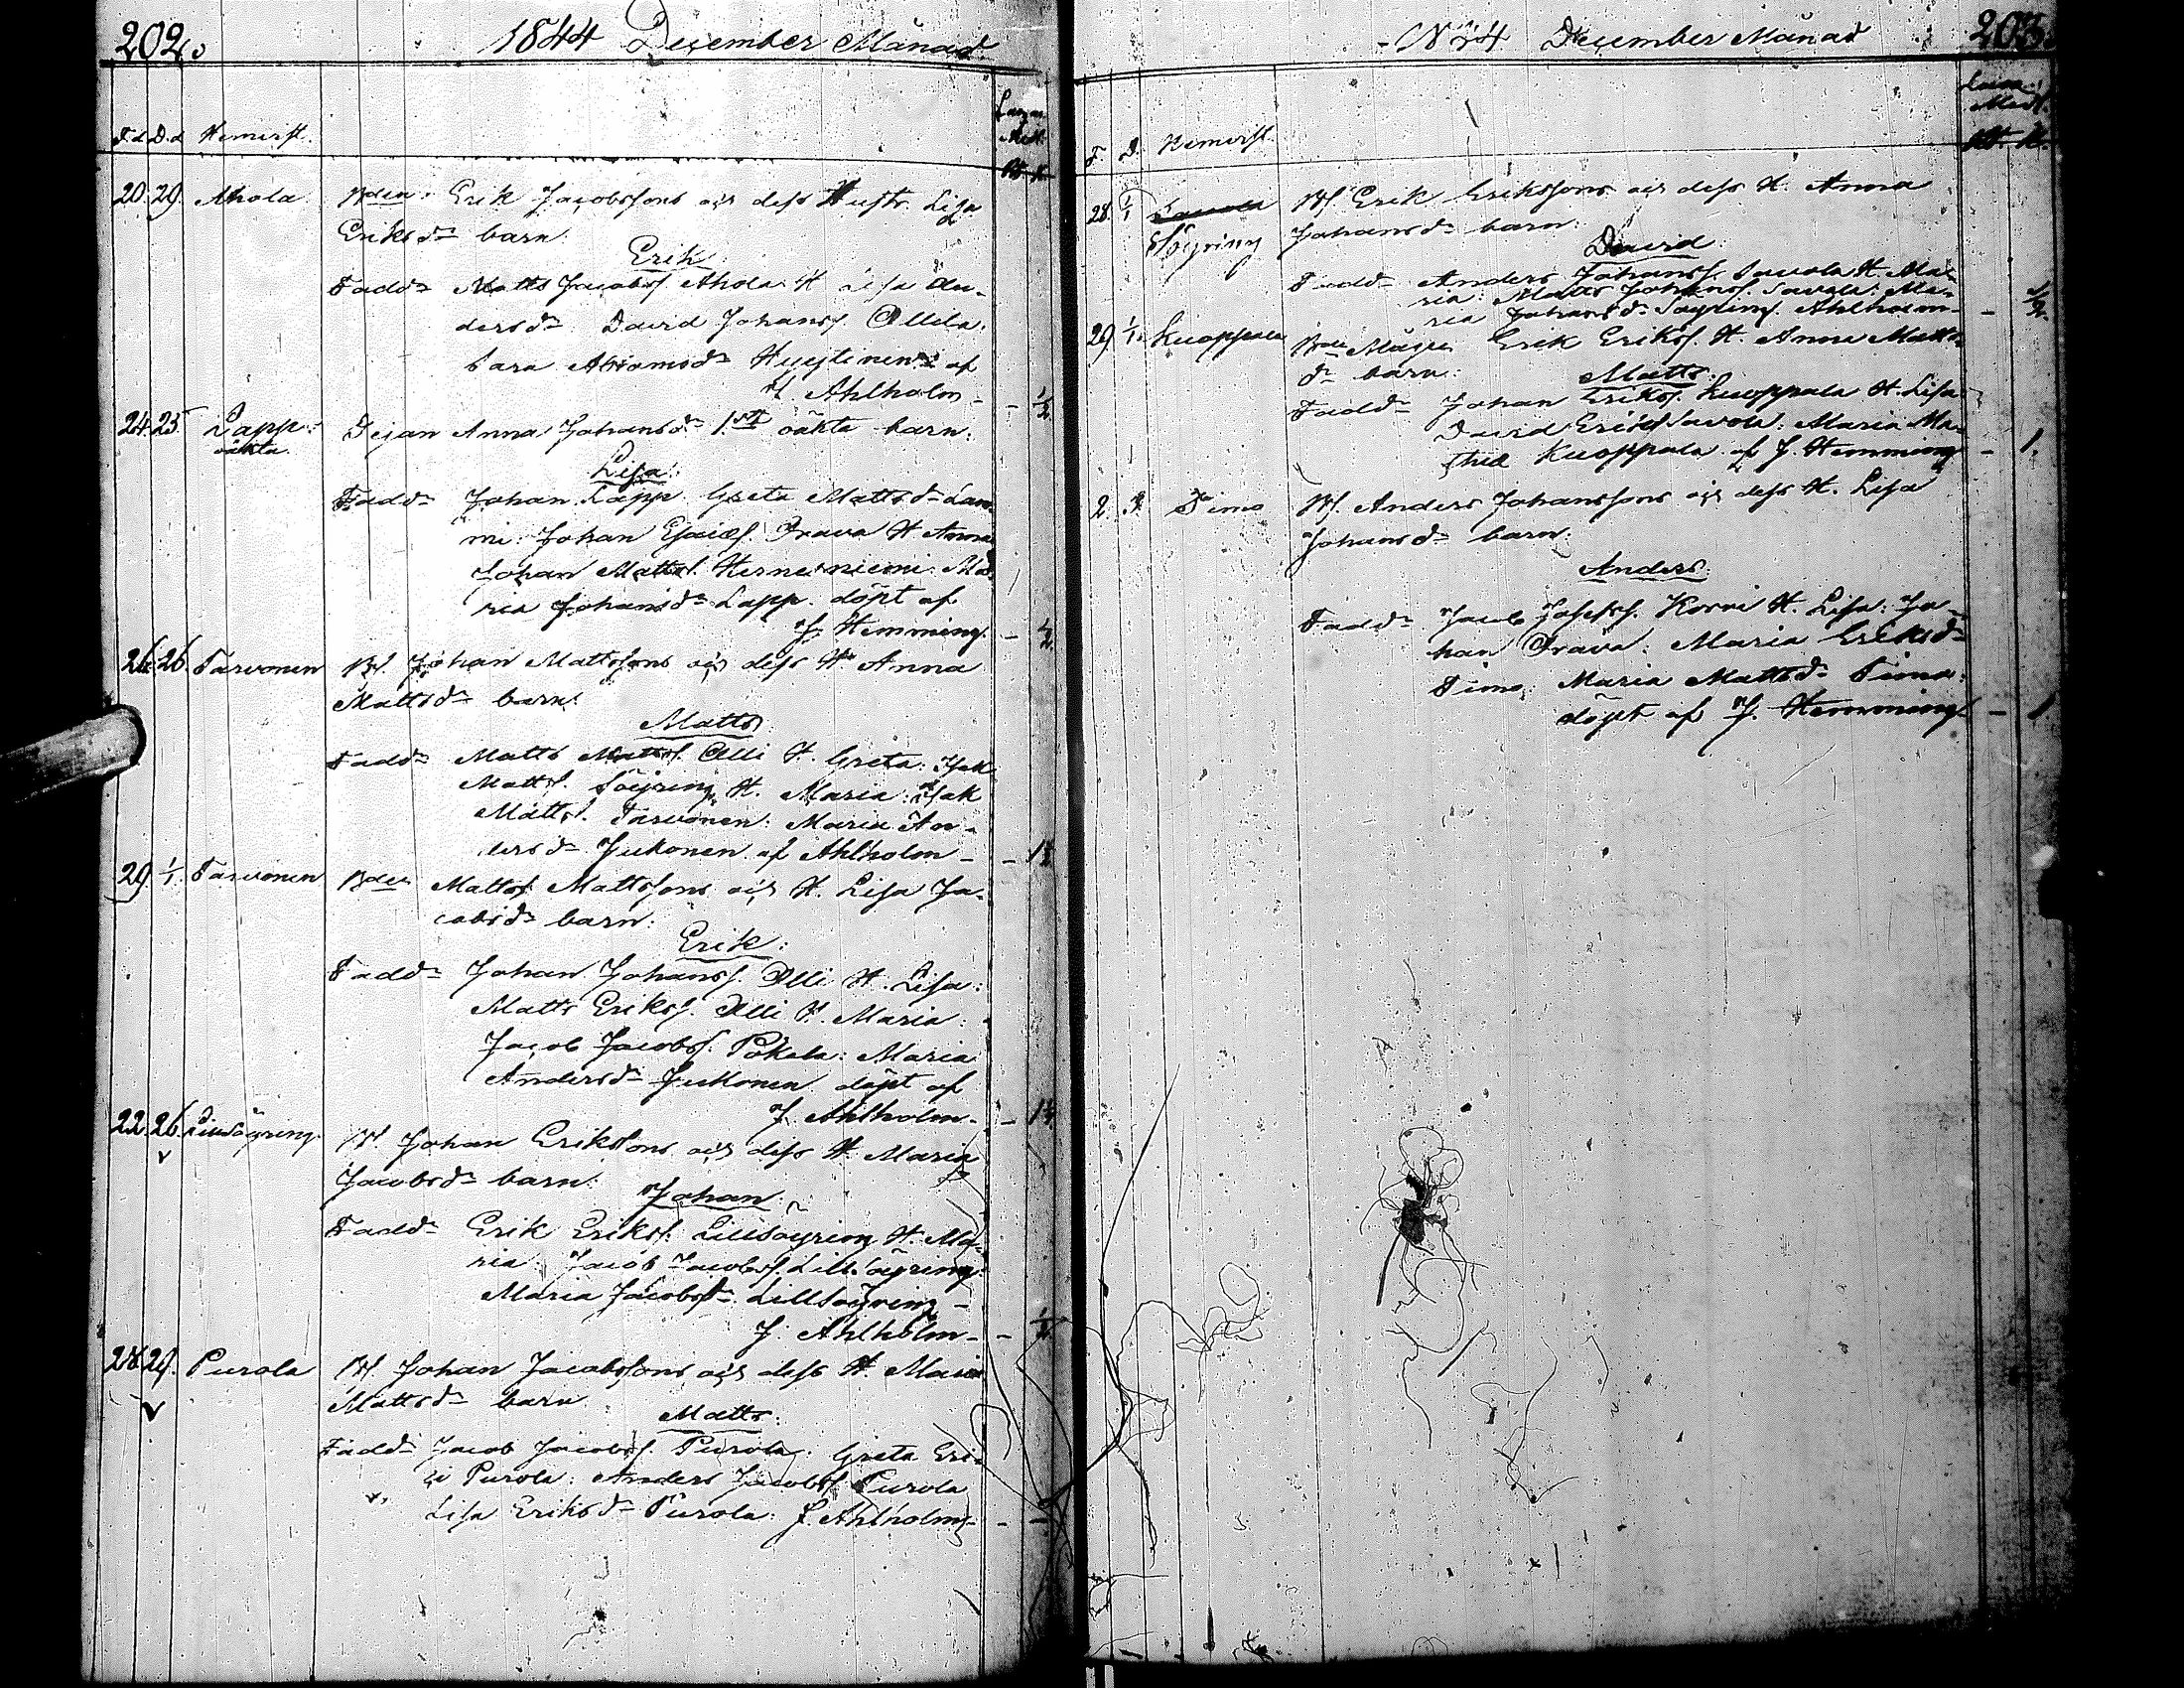 202.
1844 December Månad
F.d. D.d Hemvist.
20. 29. Ahola Bden Erik Jacobssons och dess Hustr. Lisa
Eriksdr barn:
Erik
Faddr Matts Jacobss. Ahola H. Lisa An-
dersdr David Johanss. Ollila:
Sara Abramsdr af
J. Ahlholm - - ½
24. 25 Lapp: Pigan Anna Johansdr 1sta oäkta barn:
oäkta.
Lisa:
Faddr Johan Lapp Greta Mattsdr Lam-
mi: Johan Esaiæs. Orava H Anna
Johan Matts. Herneniemi Ma-
ria Johansdr Lapp. döpt af
J. Hemming. - ½
26. 26. Tarvonen Bd. Johan Mattssons och dess H Anna
Mattsdr barn:
Matts
Faddr Matts Matts. Olli H. Greta: Isak
Matts. Söyring H. Maria: Isak
Matts. Tarvonen: Maria An-
dersdr Jukonen af Ahlholm - - 1½
29. 1/1. Tarvonen Bden Matts Mattssons och H. Lisa Ja-
cobsdr barn:
Erik:
Faddr Johan Johanss. Olli H. Lisa:
Matts Erikss. Olli H. Maria:
Jacob Jacobss. Pokela: Maria
Andersdr Jukonen döpt af
J. Ahlholm. - 1½
22. 26. Lillsöyring Bd. Johan Erikssons och dess H. Maria
Jacobsdr barn:
Johan:
Faddr Erik Erikss. Lillsöyring H. Ma-
ria: Jacob Jacobss. Lillsöyring:
Maria Jacobsdr Lillsöyring -
J: Ahlholm - - ½
28. 29. Purola Bd. Johan Jacobssons och dess H. Maria
Mattsdr barn
Matts:
Faddr Jacob Jacobss. Purola: Greta Eri-
ci Purola: Anders Jacobss. Purola
Lisa Eriksdr Purola: J. Ahlholm - -
December Månad 203.
F. D. Hemvist.
28. 1/1 Savola Bd. Erik Erikssons och dess H. Anna
Söyring Johansdr barn:
David:
Faddr Anders Johanss. Savola H. Ma-
ria: Matts Johanss. Savola: Ma-
ria Johansdr Söyring. Ahlholm - - ½
29. 1/1. Kuoppala Bden Mågen Erik Erikss. H. Anna Matts-
dr barn:
Matts:
Faddr Johan Erikss. Kuoppala H. Lisa:
David Erikss Savola: Maria Ma-
thæ Kuoppala af J. Hemming - 1.
2. Timo Bd. Anders Johanssons och dess H. Lisa
Johansdr barn:
Anders:
Faddr Jacob Josephss. Korvi H. Lisa: Jo-
han Orava: Maria Eriksdr
Timo: Maria Mattsdr Timo:
döpt af J. Hemming - 1